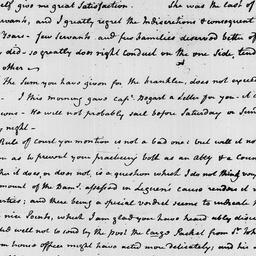 elf give me great Satisfaction. She was the last of
vants, and I greatly regret the Indiscretions & consequent
Years - few servants and few families deserved better of
did - so greatly does right conduct on the one Side, tend
other -
The Sum you have given for the franklin, does not exceed
- I this morning gave Cap.t a Letter for you - it
- He will not probably sail before Saturday or Sun
night -
Rule of court you mention is not a bad one; but will is not
as to prevent your practising both as an atty & a Coun
it does, or does not, is a question which I do not think very
mount of the Dam.s assessed in cause renders it
parties; and there being a special verdict seems to
nice Points, which I am glad you have heard ably
well not to send by the post the Packet from S.t
house office might have acted more delicately; and his